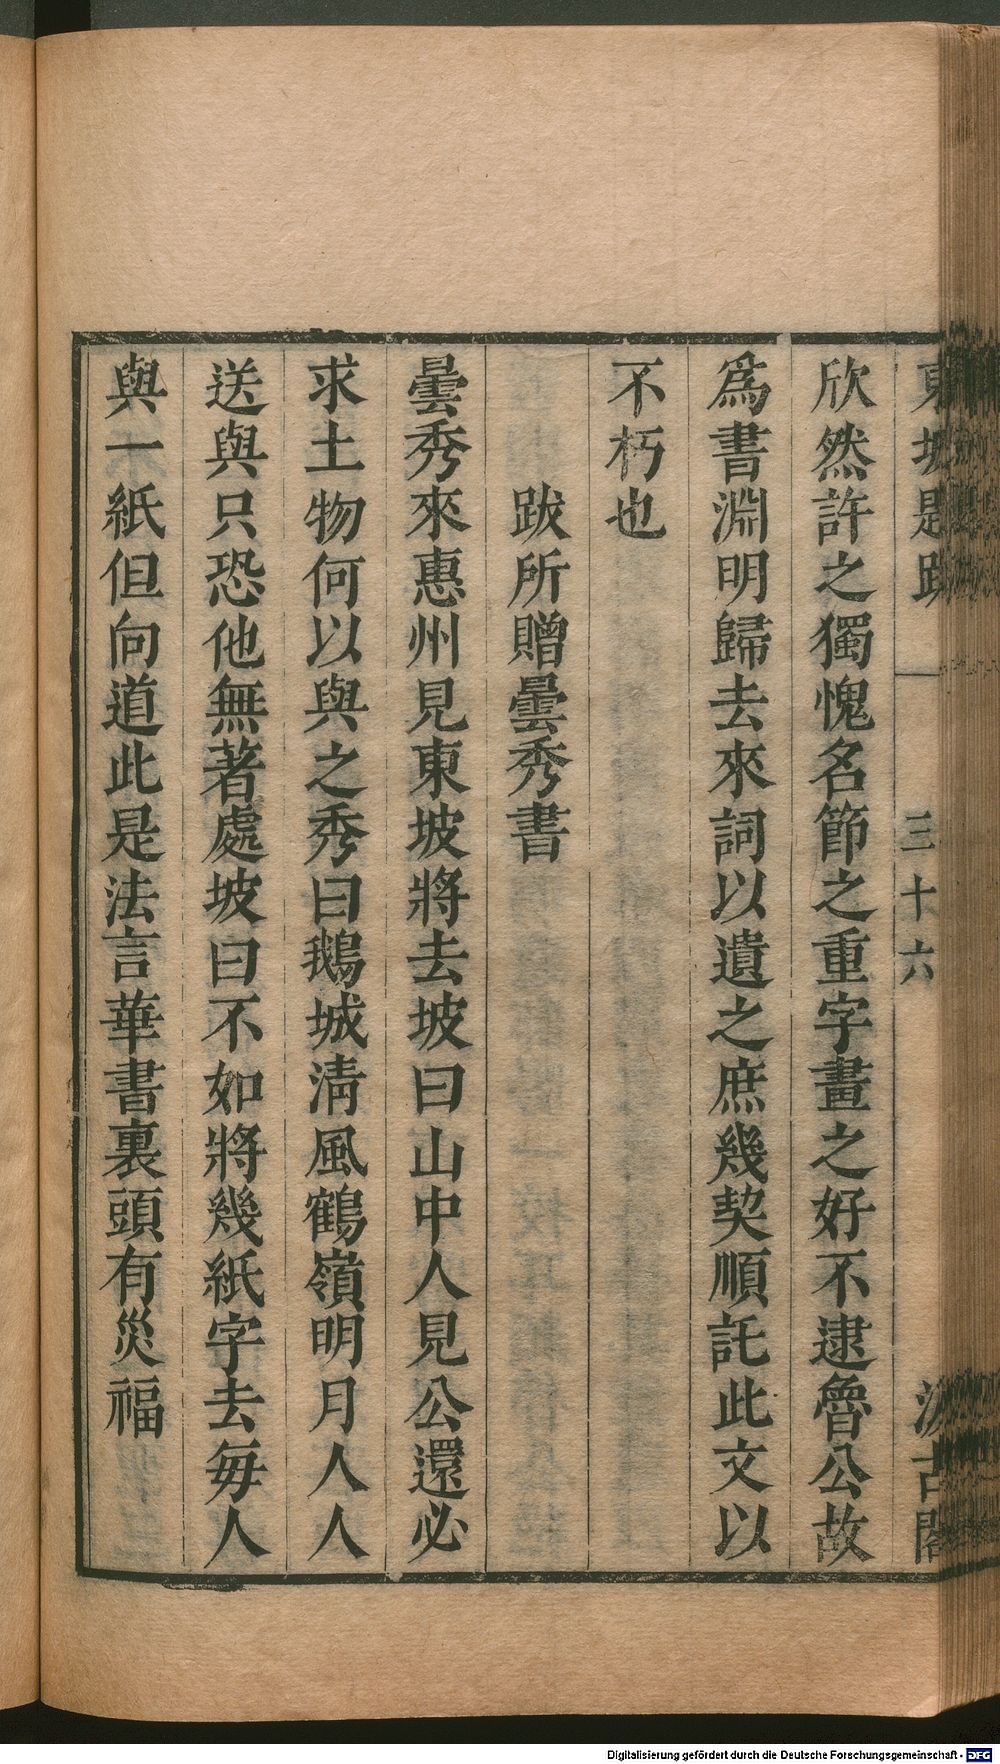 東坡題跋 三十六 汲古閣
欣然許之獨愧名節之重字畫之好不逮魯公故
爲書淵明歸去來詞以遺之庶幾契順託此文以
不朽也
跋所贈曇秀書
曇秀來惠州見東坡將去坡曰山中人見公還必
求土物何以與之秀曰鵝城清風鶴嶺明月人人
送與只恐他無著處坡曰不如將幾紙字去每人
與一紙但向道此是法言華書裏頭有災福
Digitalisierung gefördert durch die Deutsche Forschungsgemeinschaft - DFG